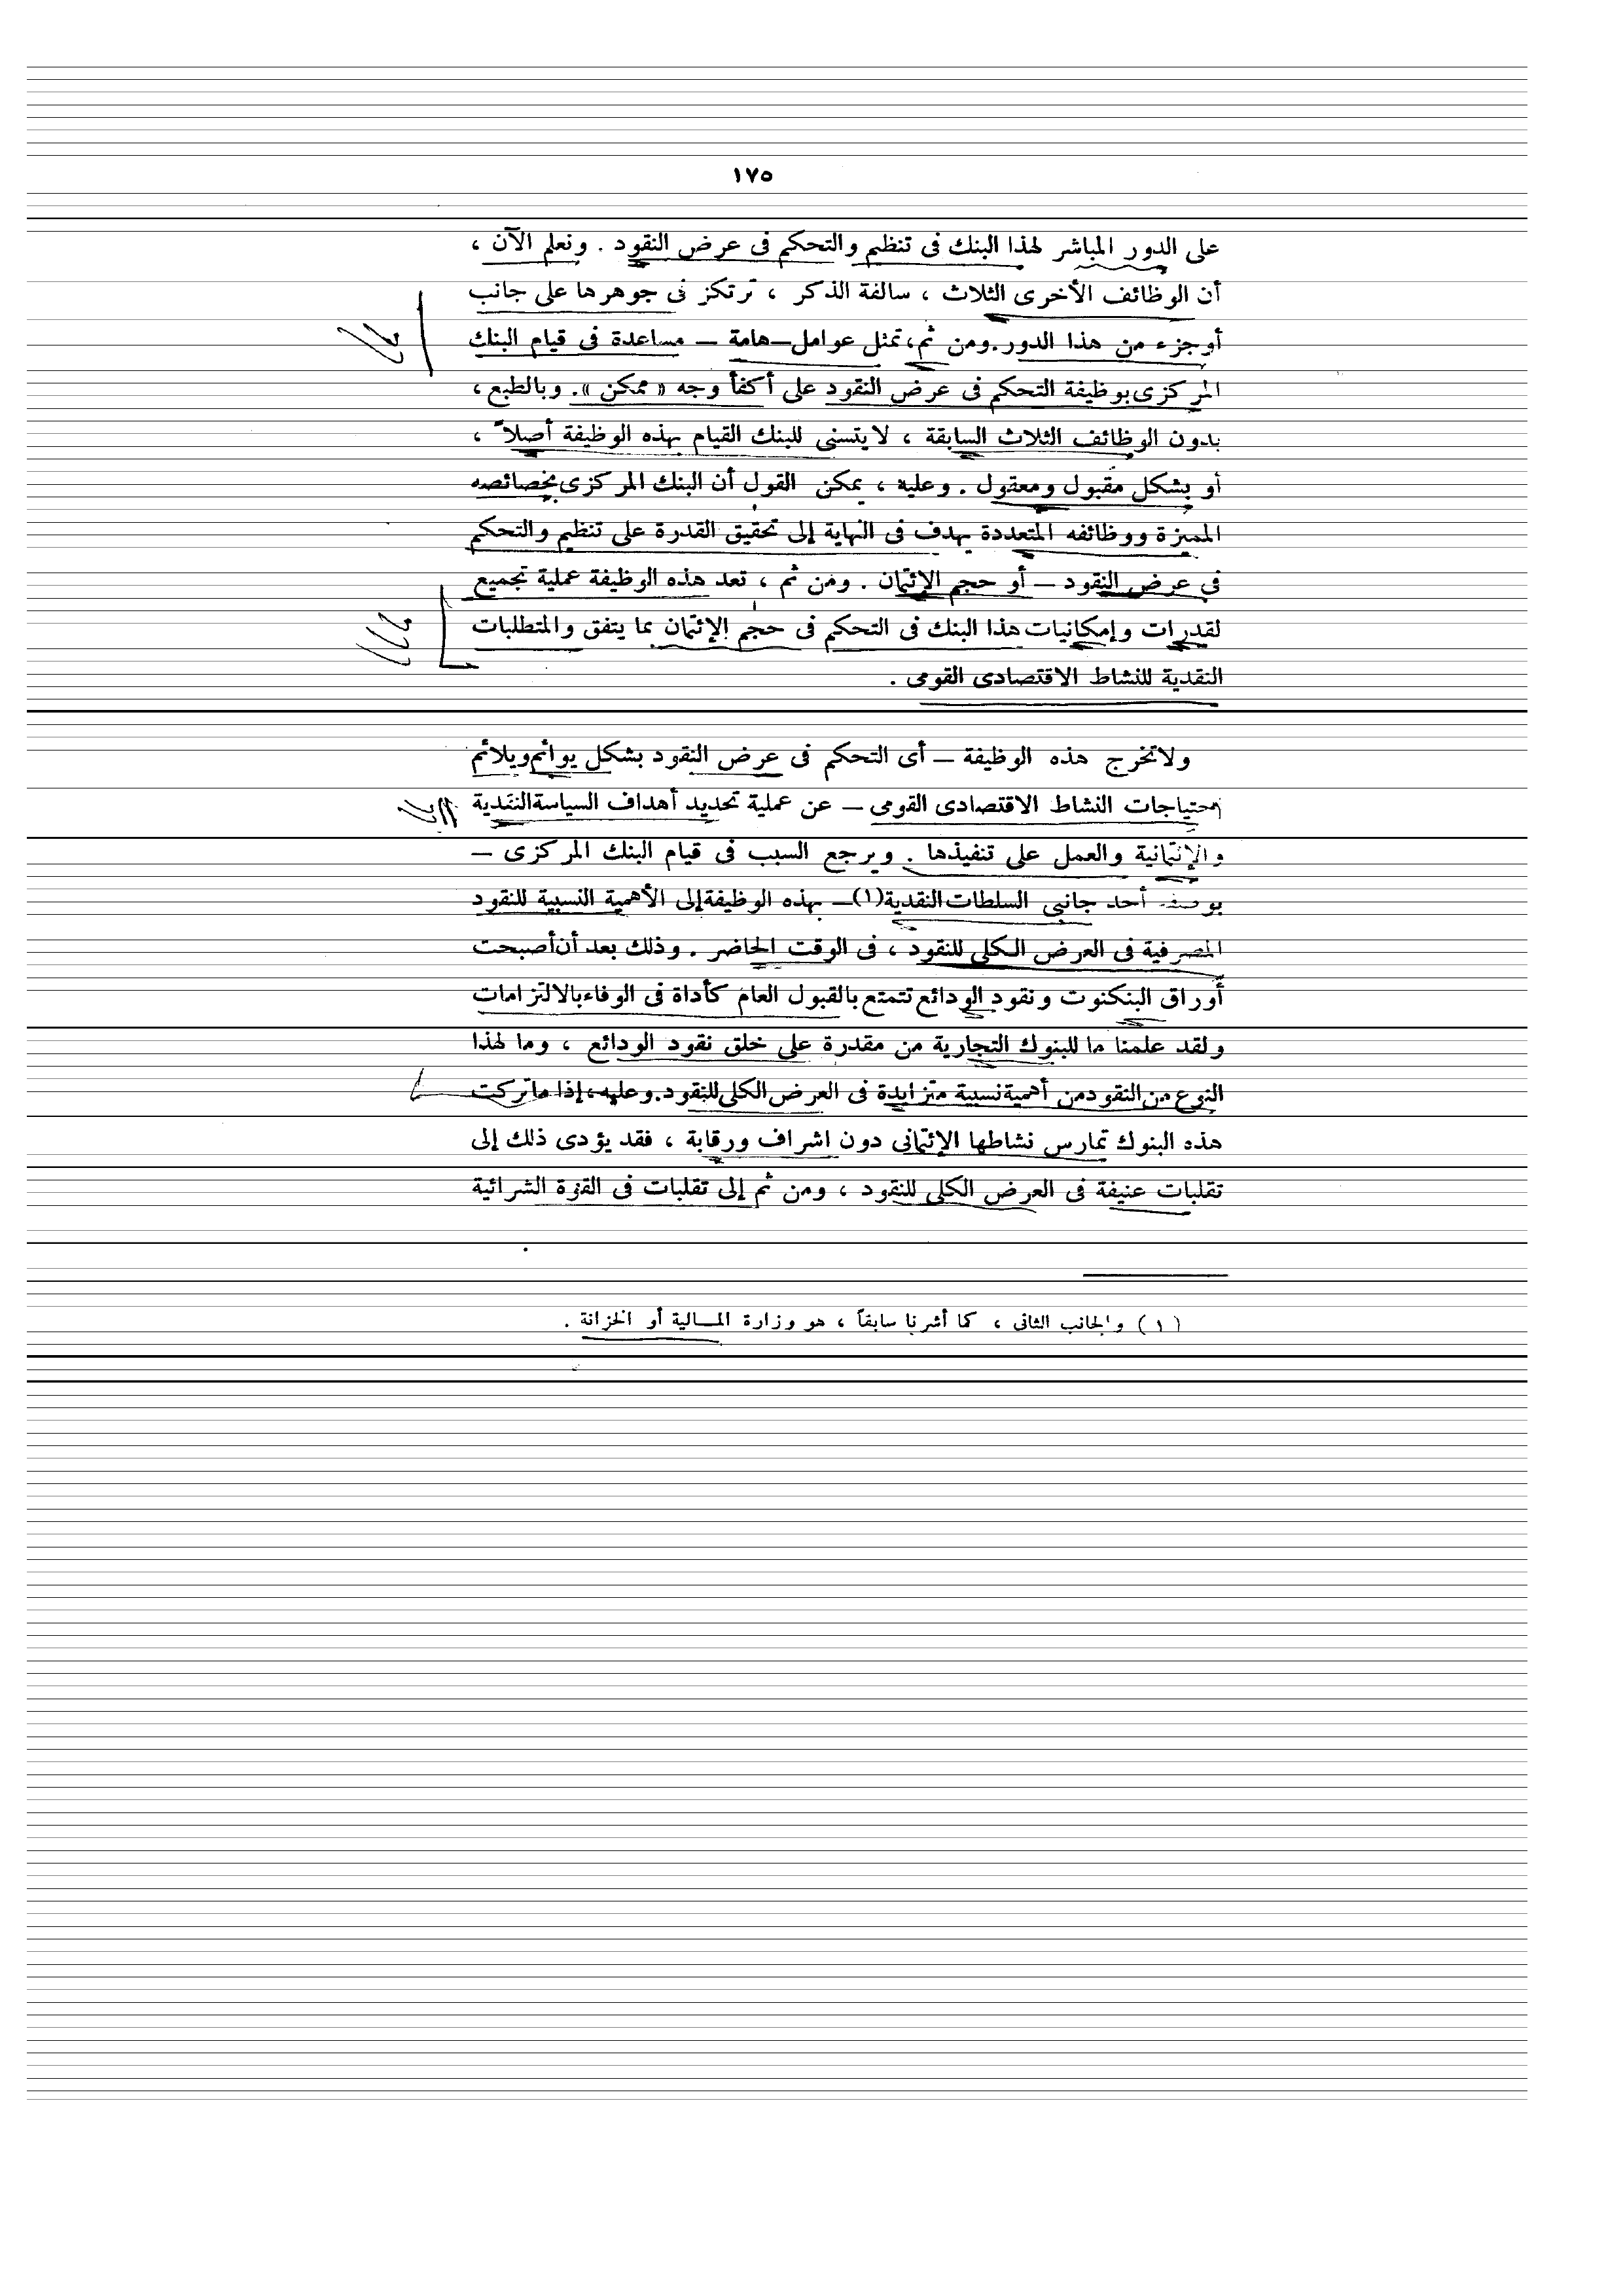 ١٧٥
على الدور المباشر لهذا البنك فى تنظيم والتحكم فى عرض النقود . ونعلم الآن ،
أن الوظائف الأخرى الثلاث ، سالفة الذكر ، ترتكز فى جوهرها على جانب
أو جزء من هذا الدور . ومن ثم ، تمثل عوامل – هامة – مساعدة فى قيام البنك
المركزى بوظيفة التحكم فى عرض النقود على أكفأ وجه « ممكن » . وبالطبع ،
بدون الوظائف الثلاث السابقة ، لا يتسنى للبنك القيام بهذه الوظيفة أصلاً ،
أو بشكل مقبول ومعقول . وعليه ، يمكن القول أن البنك المركزى بخصائصه
المميزة ووظائفه المتعددة يهدف فى النهاية إلى تحقيق القدرة على تنظيم والتحكم
فى عرض النقود – أو حجم الإئتمان . ومن ثم ، تعد هذه الوظيفة عملية تجميع
لقدرات وإمكانيات هذا البنك فى التحكم فى حجم الإئتمان بما يتفق والمتطلبات
النقدية للنشاط الاقتصادى القومى .
ولا تخرج هذه الوظيفة – أى التحكم فى عرض النقود بشكل يوائم ويلائم
إحتياجات النشاط الاقتصادى القومى – عن عملية تحديد أهداف السياسة النقدية
والإئتمانية والعمل على تنفيذها . ويرجع السبب فى قيام البنك المركزى –
بوصفه أحد جانبى السلطات النقدية (١) – بهذه الوظيفة إلى الأهمية النسبية للنقود
المصرفية فى العرض الكلى للنقود ، فى الوقت الحاضر . وذلك بعد أن أصبحت
أوراق البنكنوت ونقود الودائع تتمتع بالقبول العام كأداة فى الوفاء بالالتزامات
ولقد علمنا ما للبنوك التجارية من مقدرة على خلق نقود الودائع ، وما لهذا
النوع من النقود من أهمية نسبية متزايدة فى العرض الكلى للنقود . وعليه ، إذا ما تركت
هذه البنوك تمارس نشاطها الإئتمانى دون اشراف ورقابة ، فقد يؤدى ذلك إلى
تقلبات عنيفة فى العرض الكلى للنقود ، ومن ثم إلى تقلبات فى القوة الشرائية
(١) والجانب الثانى ، كما أشرنا سابقاً ، هو وزارة المالية أو الخزانة .